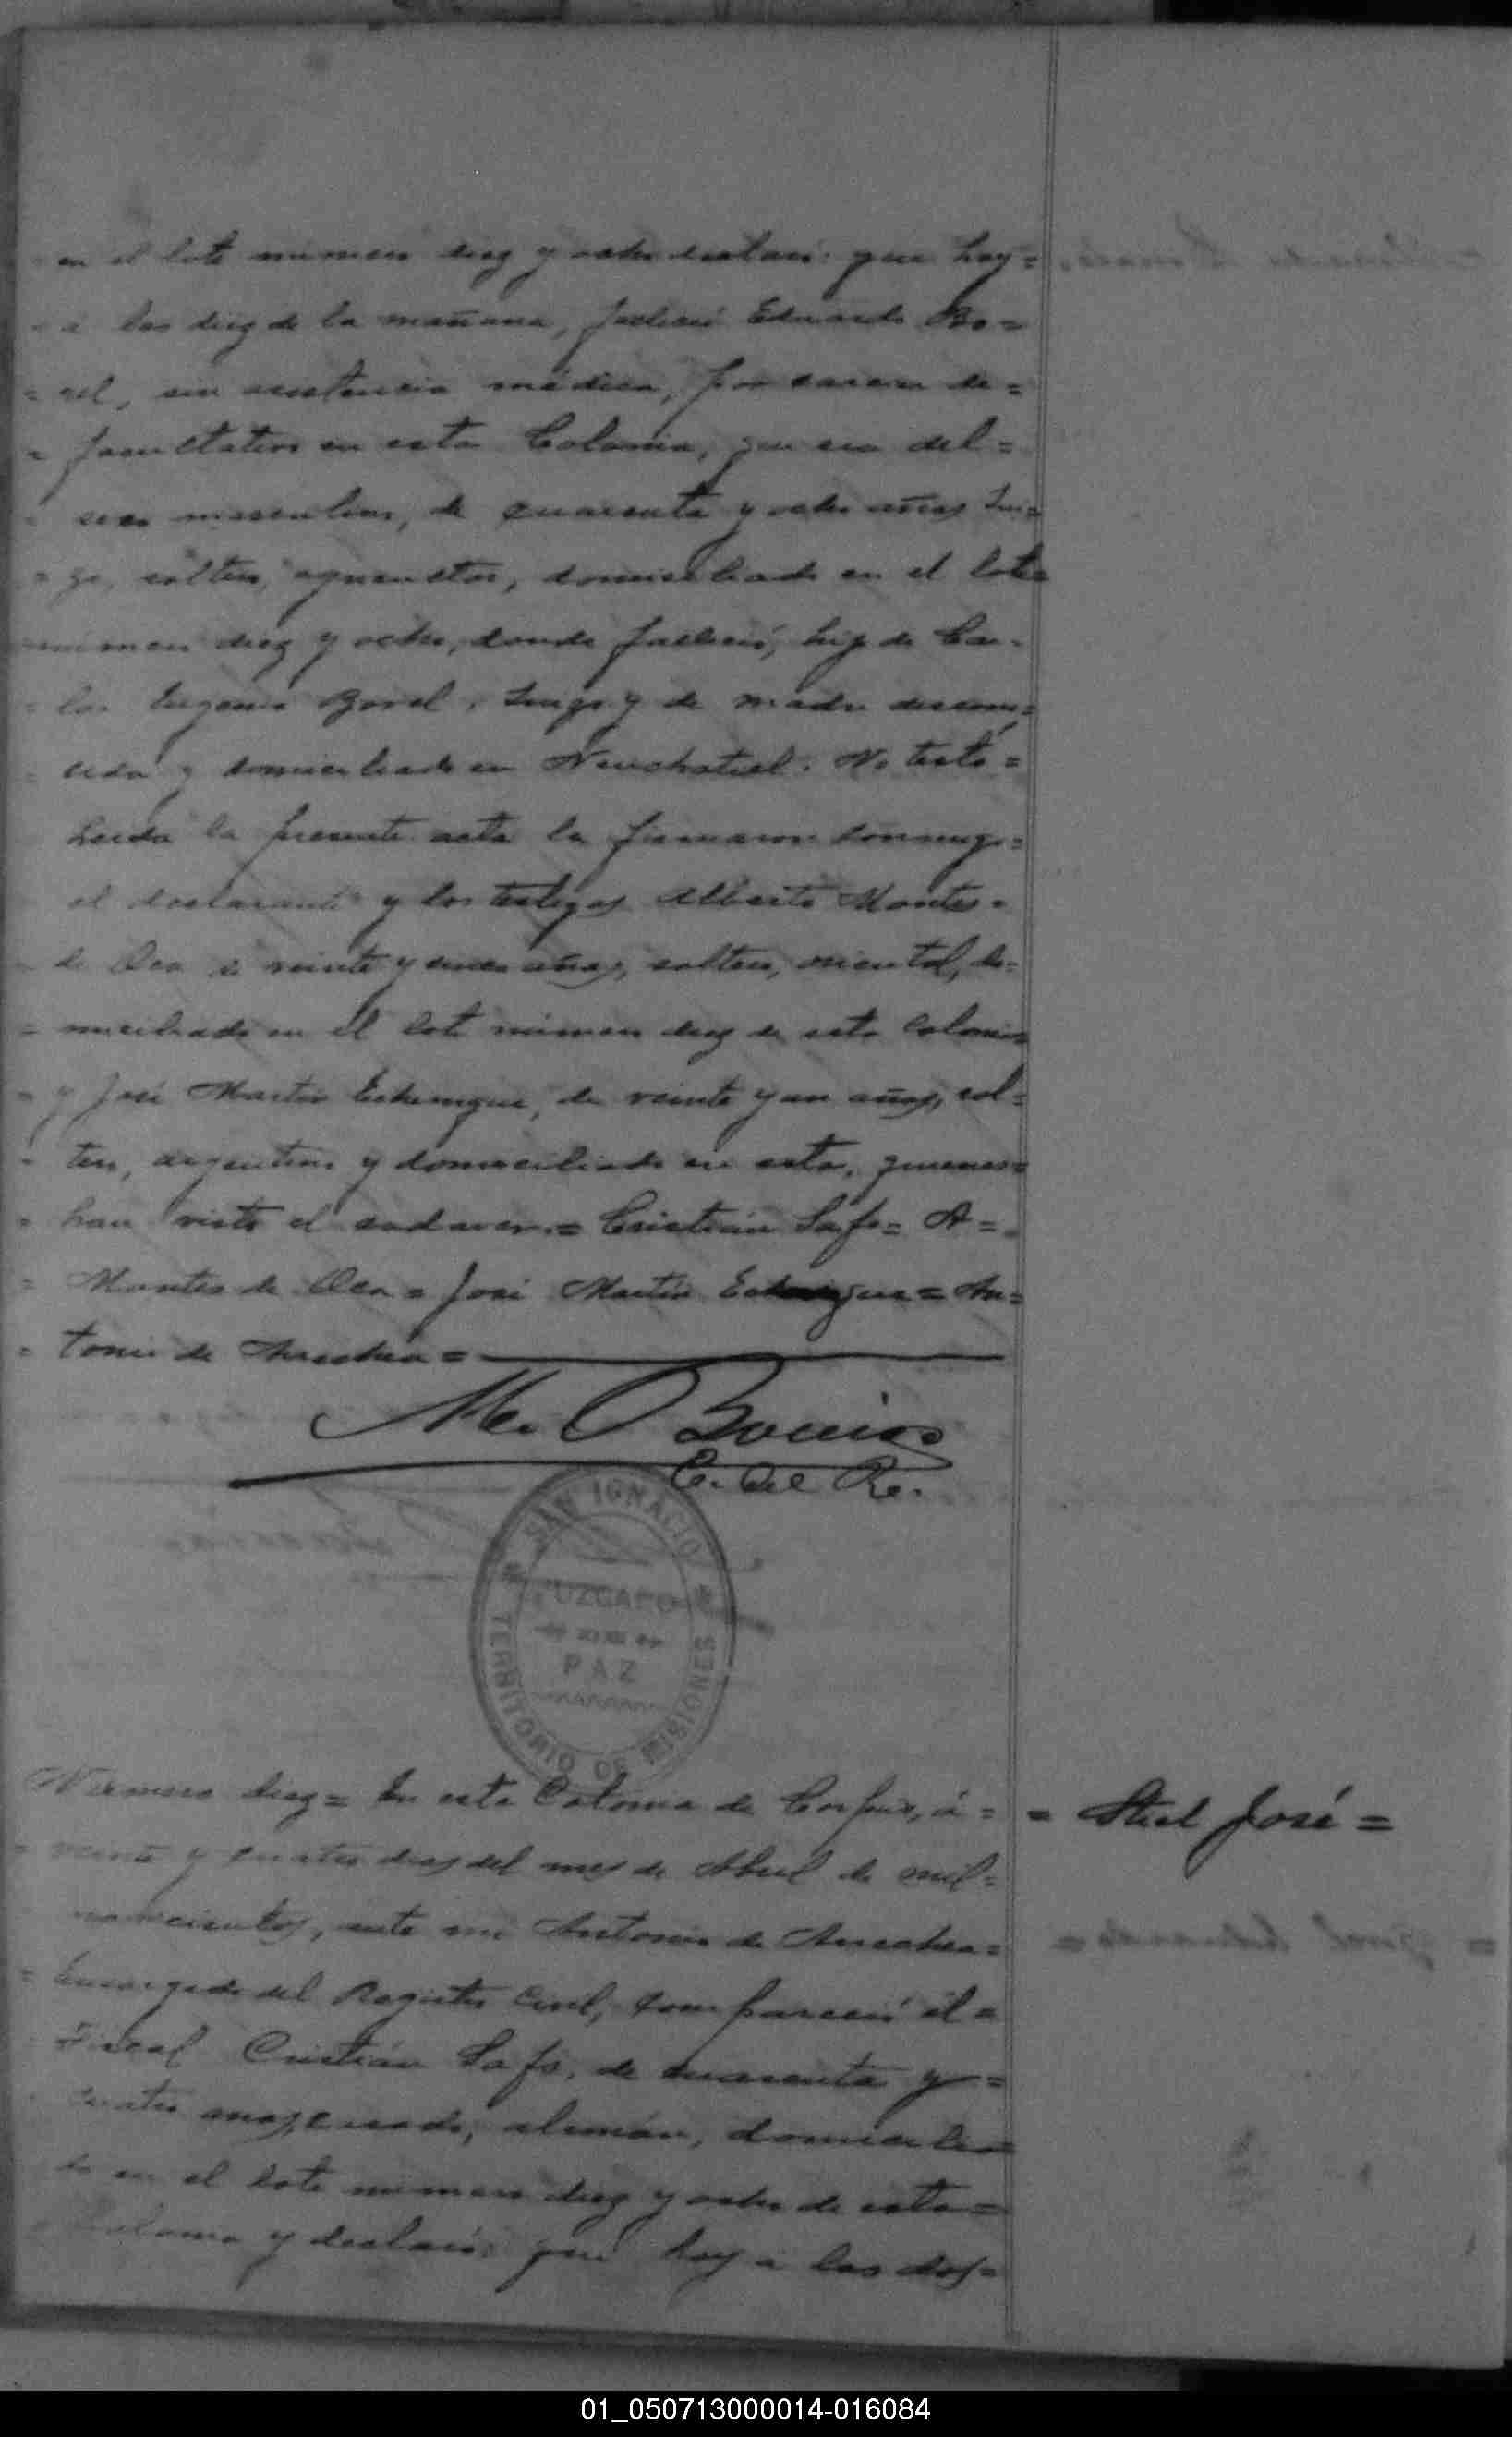 en el lote número diez y ocho declaró: que hoy=
= á las diez de la mañana, falleció Eduardo Bo=
= rel, sin asistencia médica, por carecer de=
= facultativo en esta Colonia, que era del=
= sexo masculino, de cuarenta y ocho años Sui=
= zo, soltero, agricultor, domiciliado en el lote=
número diez y ocho, donde falleció, hijo de Car-
= los Eugenio Borel, Suizo y de madre descono=
= cida y domiciliado en Neuchatel. No testó=
Leida la presente acta la firmaron conmigo=
el declarante y los testigos Alberto Montes=
de Oca de veinte y cinco años, soltero, oriental, do=
= miciliado en el lote número diez de esta Colonia=
= y José Martin Echenique, de veinte y un años, sol=
= tero, argentino y domiciliado en esta, quienes=
= han visto el cadaver.= Cristián Safo= A=
= Montes de Oca = José Martin Echenique = An=
= tonio de Arrechea =
M. O
C. del R.
SAN IGNACIO
JUZGADO
PAZ
TERRITORIO DE MISIONES
Número diez= En esta Colonia de Corpus, á =
= Stiel José =
= veinte y cuatro dias del mes de Abril de mil=
novecientos, ante mi Antonio de Arrechea=
= Encargado del Registro Civil, compareció el=
Fiscal Cristián Safo, de cuarenta y =
cuatro años, casado, alemán, domicilia=
do en el lote número diez y ocho de esta=
= Colonia y declaró: que hoy á las dos=
01_050713000014-016084